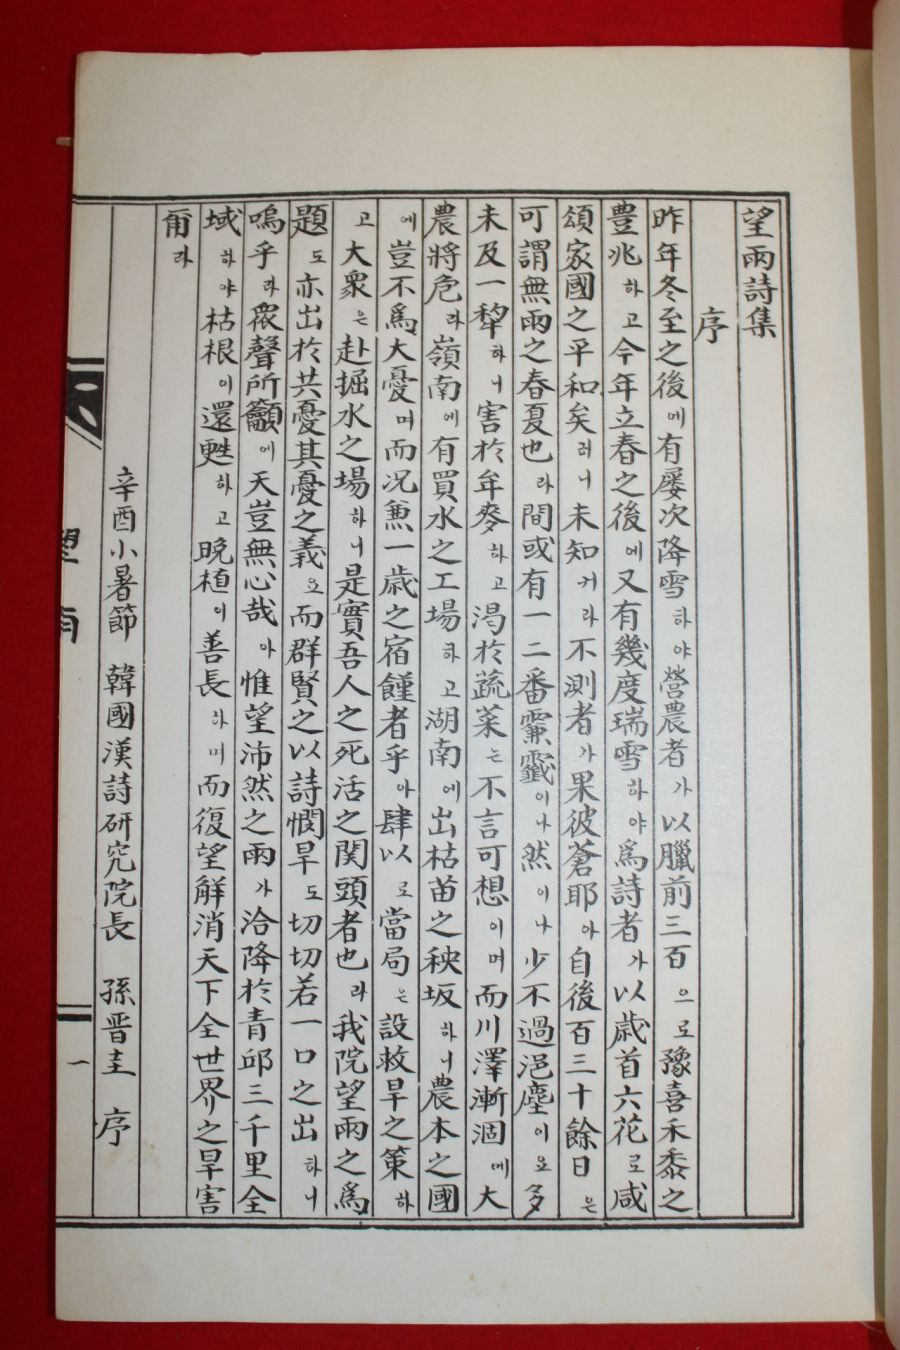 望雨詩集
序
昨年冬至之後에有屡次降雪하야營農者가以臘前三百으로豫喜禾黍之
豊兆하고今年立春之後에又有幾度瑞雪하야爲詩者가以歲首六花로咸
頌家國之平和矣러니未知커라不測者가果彼蒼耶아自後百三十餘日은
可謂無雨之春夏也라間或有一二番霢霂이나然이나少不過浥塵이요多
未及一犂하니害於牟麥하고渴於蔬菜는不言可想이며而川澤漸涸에大
農將危라嶺南에有買水之工場하고湖南에出枯苗之秧坂하니農本之國
에豈不爲大憂며而况兼一歲之宿饉者乎아肆以로當局은設救旱之策하
고大衆은赴掘水之場하니是實吾人之死活之関頭者也라我院望雨之爲
題도亦出於共憂其憂之義요而群賢之以詩憫旱도切切若一口之出하니
嗚乎라衆聲所籲에天豈無心哉아惟望沛然之雨가洽降於青邱三千里全
域하야枯根이還甦하고晩植이善長하며而復望解消天下全世界之旱害
甭라
辛酉小暑節 韓國漢詩硏究院長 孫晋圭 序
望雨
一